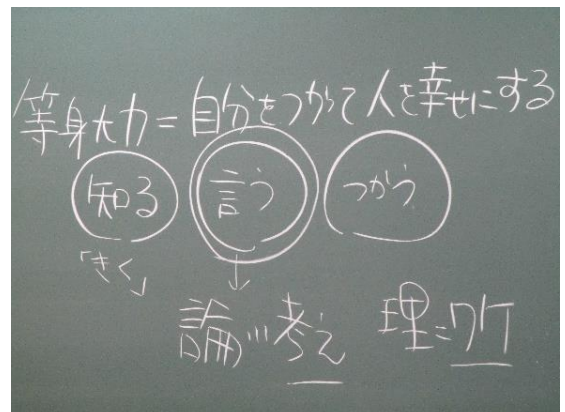 等身大力=自分をつかって人を幸せにする
知る 言う つかう
「きく」 ↓
論…考え 理=ワケ